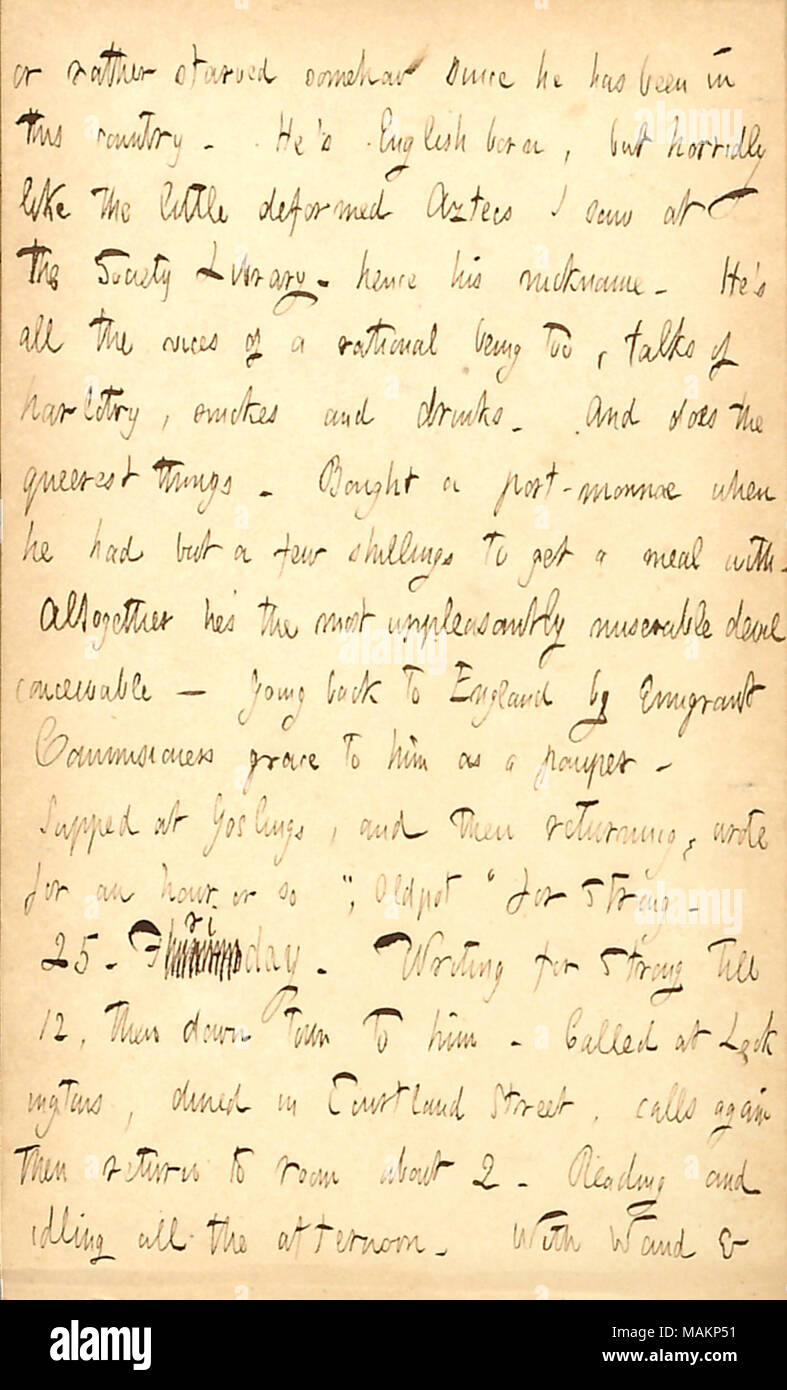 or rather starved somehow since he has been in
this country. He's English born, but horridly
like the little deformed Aztecs I saw at
the Society Library. hence his nickname. He's
all the vices of a rational being too, talks of
harlotry, smokes and drinks. And does the
queerest things. Bought a port-monnae when
he had but a few shillings to get a meal with.
Altogether he's the most unpleasantly miserable devil
conceivable — Going back to England by Emigrant
Commissioners grace to him as a pauper.
Supped at Goslings, and then returning, wrote
for an hour or so "Oldpot" for Strong.
25. Friday. Writing for Strong till
12, then down Town to him. Called at Lock
ingtons, dined in Courtland Street, calls again
then return to room about 2. Reading and
idling all the afternoon. With Waud &
alamy
Image ID: MAKP51
www.alamy.com